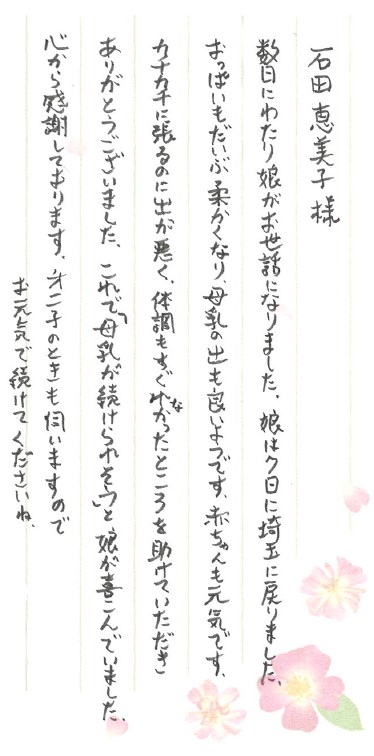 石田恵美子様
数日にわたり娘がお世話になりました。娘は7日に埼玉に戻りました。
おっぱいもだいぶ柔かくなり、母乳の出も良いようです。赤ちゃんも元気です。
カチカチに張るのに出が悪く、体調もすぐれなかったところを助けていただき
ありがとうございました。これで「母乳が続けられそう」と娘が喜こんでいました。
心から感謝しております。オ二子のときも伺いますので
お元気で続けてくださいね。